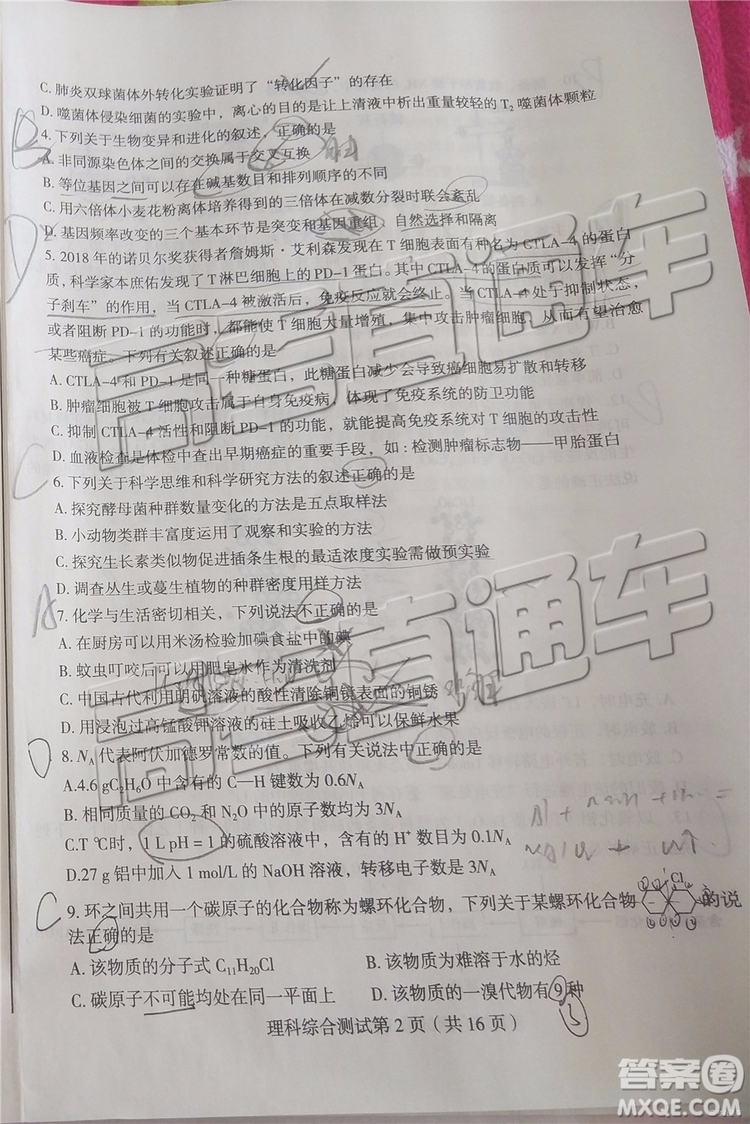 C. 肺炎双球菌体外转化实验证明了“转化因子”的存在
D. 噬菌体侵染细菌的实验中，离心的目的是让上清液中析出重量较轻的 T₂ 噬菌体颗粒
4. 下列关于生物变异和进化的叙述，正确的是
A. 非同源染色体之间的交换属于交叉互换
B. 等位基因之间可以存在碱基数目和排列顺序的不同
C. 用六倍体小麦花粉离体培养得到的三倍体在减数分裂时联会紊乱
D. 基因频率改变的三个基本环节是突变和基因重组、自然选择和隔离
5. 2018 年的诺贝尔奖获得者詹姆斯·艾利森发现在 T 细胞表面有种名为 CTLA-4 的蛋白
质，科学家本庶佑发现了 T 淋巴细胞上的 PD-1 蛋白。其中 CTLA-4 的蛋白质可以发挥“分
子刹车”的作用，当 CTLA-4 被激活后，免疫反应就会终止。当 CTLA-4 处于抑制状态，
或者阻断 PD-1 的功能时，都能使 T 细胞大量增殖，集中攻击肿瘤细胞，从而有望治愈
某些癌症。下列有关叙述正确的是
A. CTLA-4 和 PD-1 是同一种糖蛋白，此糖蛋白减少会导致癌细胞易扩散和转移
B. 肿瘤细胞被 T 细胞攻击属于自身免疫病，体现了免疫系统的防卫功能
C. 抑制 CTLA-4 活性和阻断 PD-1 的功能，就能提高免疫系统对 T 细胞的攻击性
D. 血液检查是体检中查出早期癌症的重要手段，如：检测肿瘤标志物——甲胎蛋白
6. 下列关于科学思维和科学研究方法的叙述正确的是
A. 探究酵母菌种群数量变化的方法是五点取样法
B. 小动物类群丰富度运用了观察和实验的方法
C. 探究生长素类似物促进插条生根的最适浓度实验需做预实验
D. 调查丛生或蔓生植物的种群密度用样方法
7. 化学与生活密切相关，下列说法不正确的是
A. 在厨房可以用米汤检验加碘食盐中的碘
B. 蚊虫叮咬后可以用肥皂水作为清洗剂
C. 中国古代利用明矾溶液的酸性清除铜镜表面的铜锈
D. 用浸泡过高锰酸钾溶液的硅土吸收乙烯可以保鲜水果
8. Nₐ 代表阿伏加德罗常数的值。下列有关说法中正确的是
A.4.6 gC₂H₆O 中含有的 C—H 键数为 0.6Nₐ
B. 相同质量的 CO₂ 和 N₂O 中的原子数均为 3Nₐ
C.T ℃时，1 L pH = 1 的硫酸溶液中，含有的 H⁺ 数目为 0.1Nₐ
D.27 g 铝中加入 1 mol/L 的 NaOH 溶液，转移电子数是 3Nₐ
9. 环之间共用一个碳原子的化合物称为螺环化合物，下列关于某螺环化合物 Cl 的说
法正确的是
A. 该物质的分子式 C₁₁H₂₀Cl B. 该物质为难溶于水的烃
C. 碳原子不可能均处在同一平面上 D. 该物质的一溴代物有 9 种
理科综合测试第 2 页（共 16 页）
高考直通车
高考直通车
答案圈
MXQE.COM